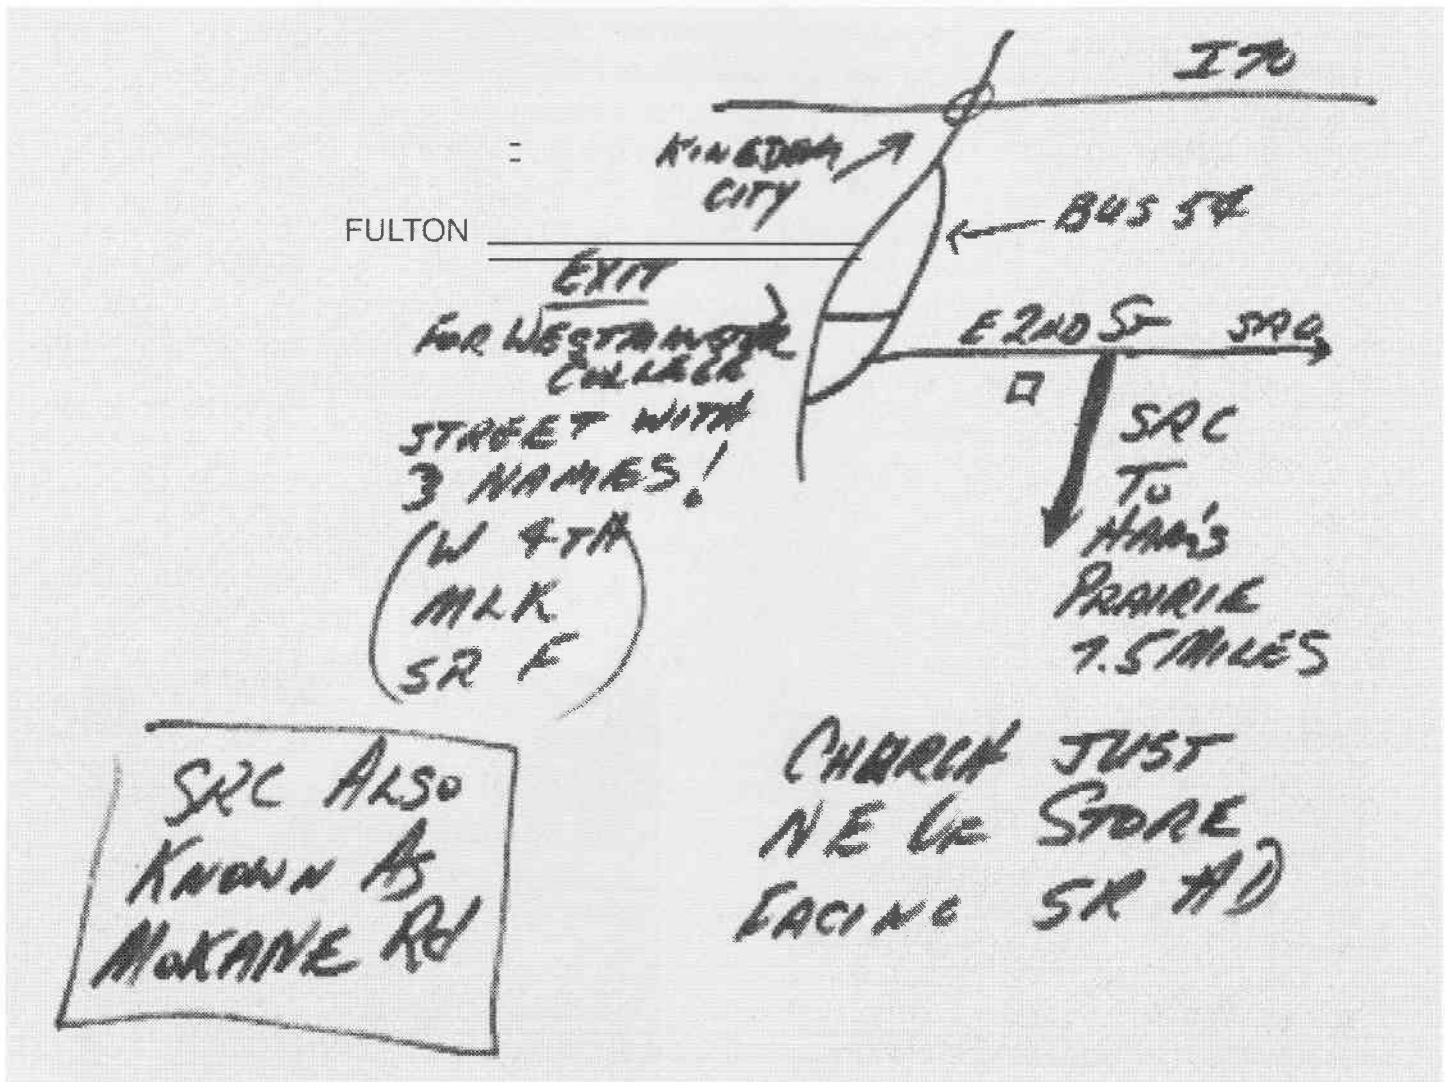 I 70
KINGDOM
CITY
BUS 54
FULTON
EXIT
FOR WESTMINSTER
COLLEGE
STREET WITH
3 NAMES!
(W 4TH
MLK
SR F)
E 2ND ST SRO
SRC
TO
HAM'S
PRAIRIE
7.5 MILES
SRC ALSO
KNOWN AS
MOKANE Rd
CHURCH JUST
NE OF STORE
FACING SR AD